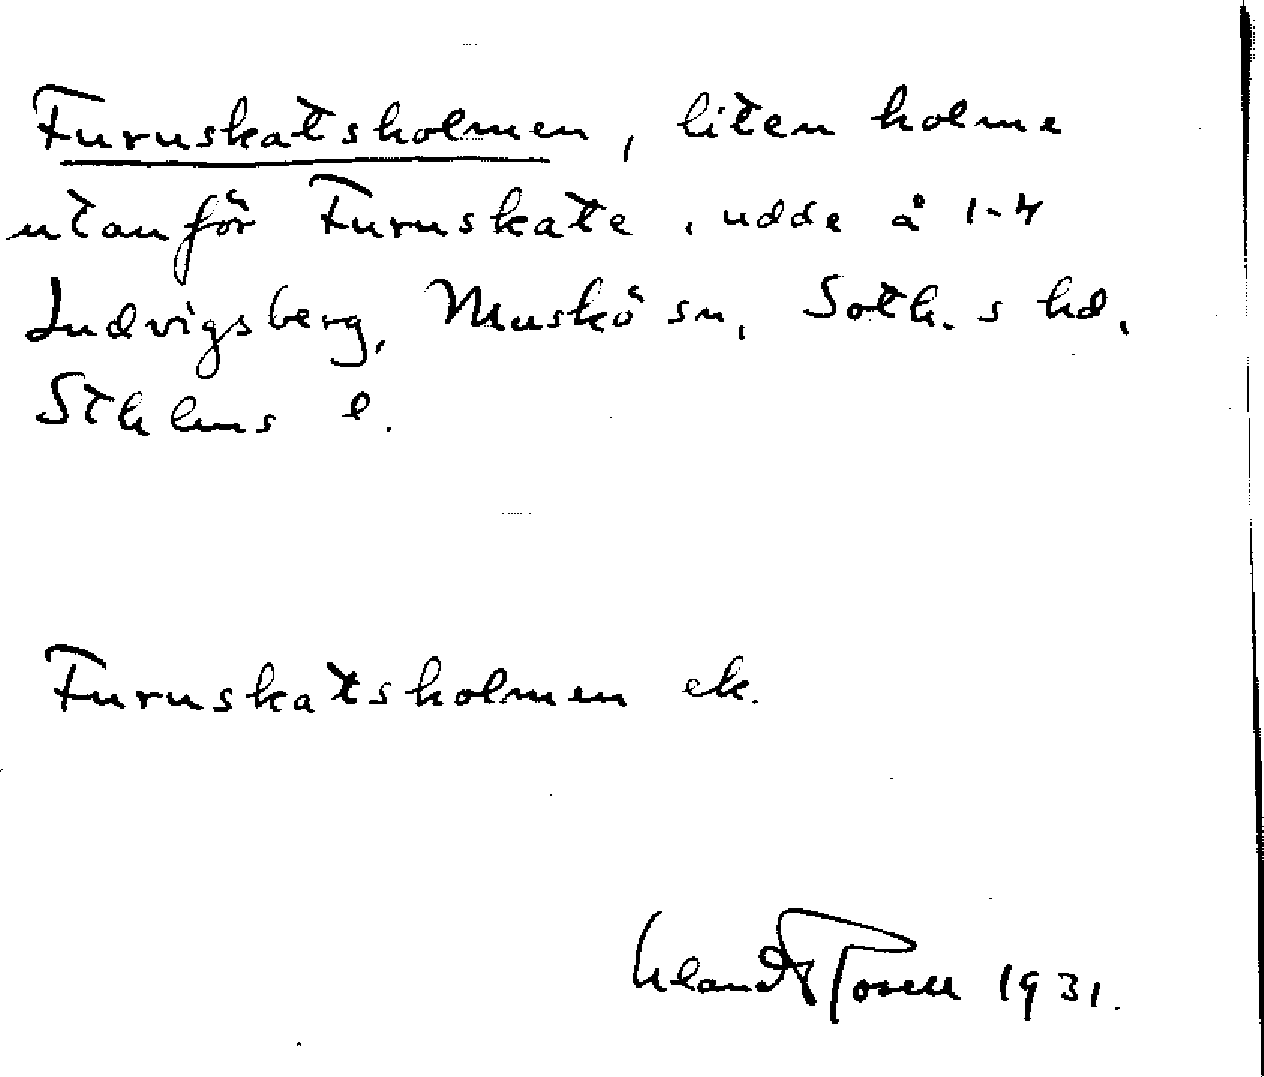 Furuskatsholmen, liten holme
utanför Furuskate, udde å 1-4
Ludvigsberg, Muskö sn, Soth. s hd.
Sthlms l.
Furuskatsholmen ek.
1931.